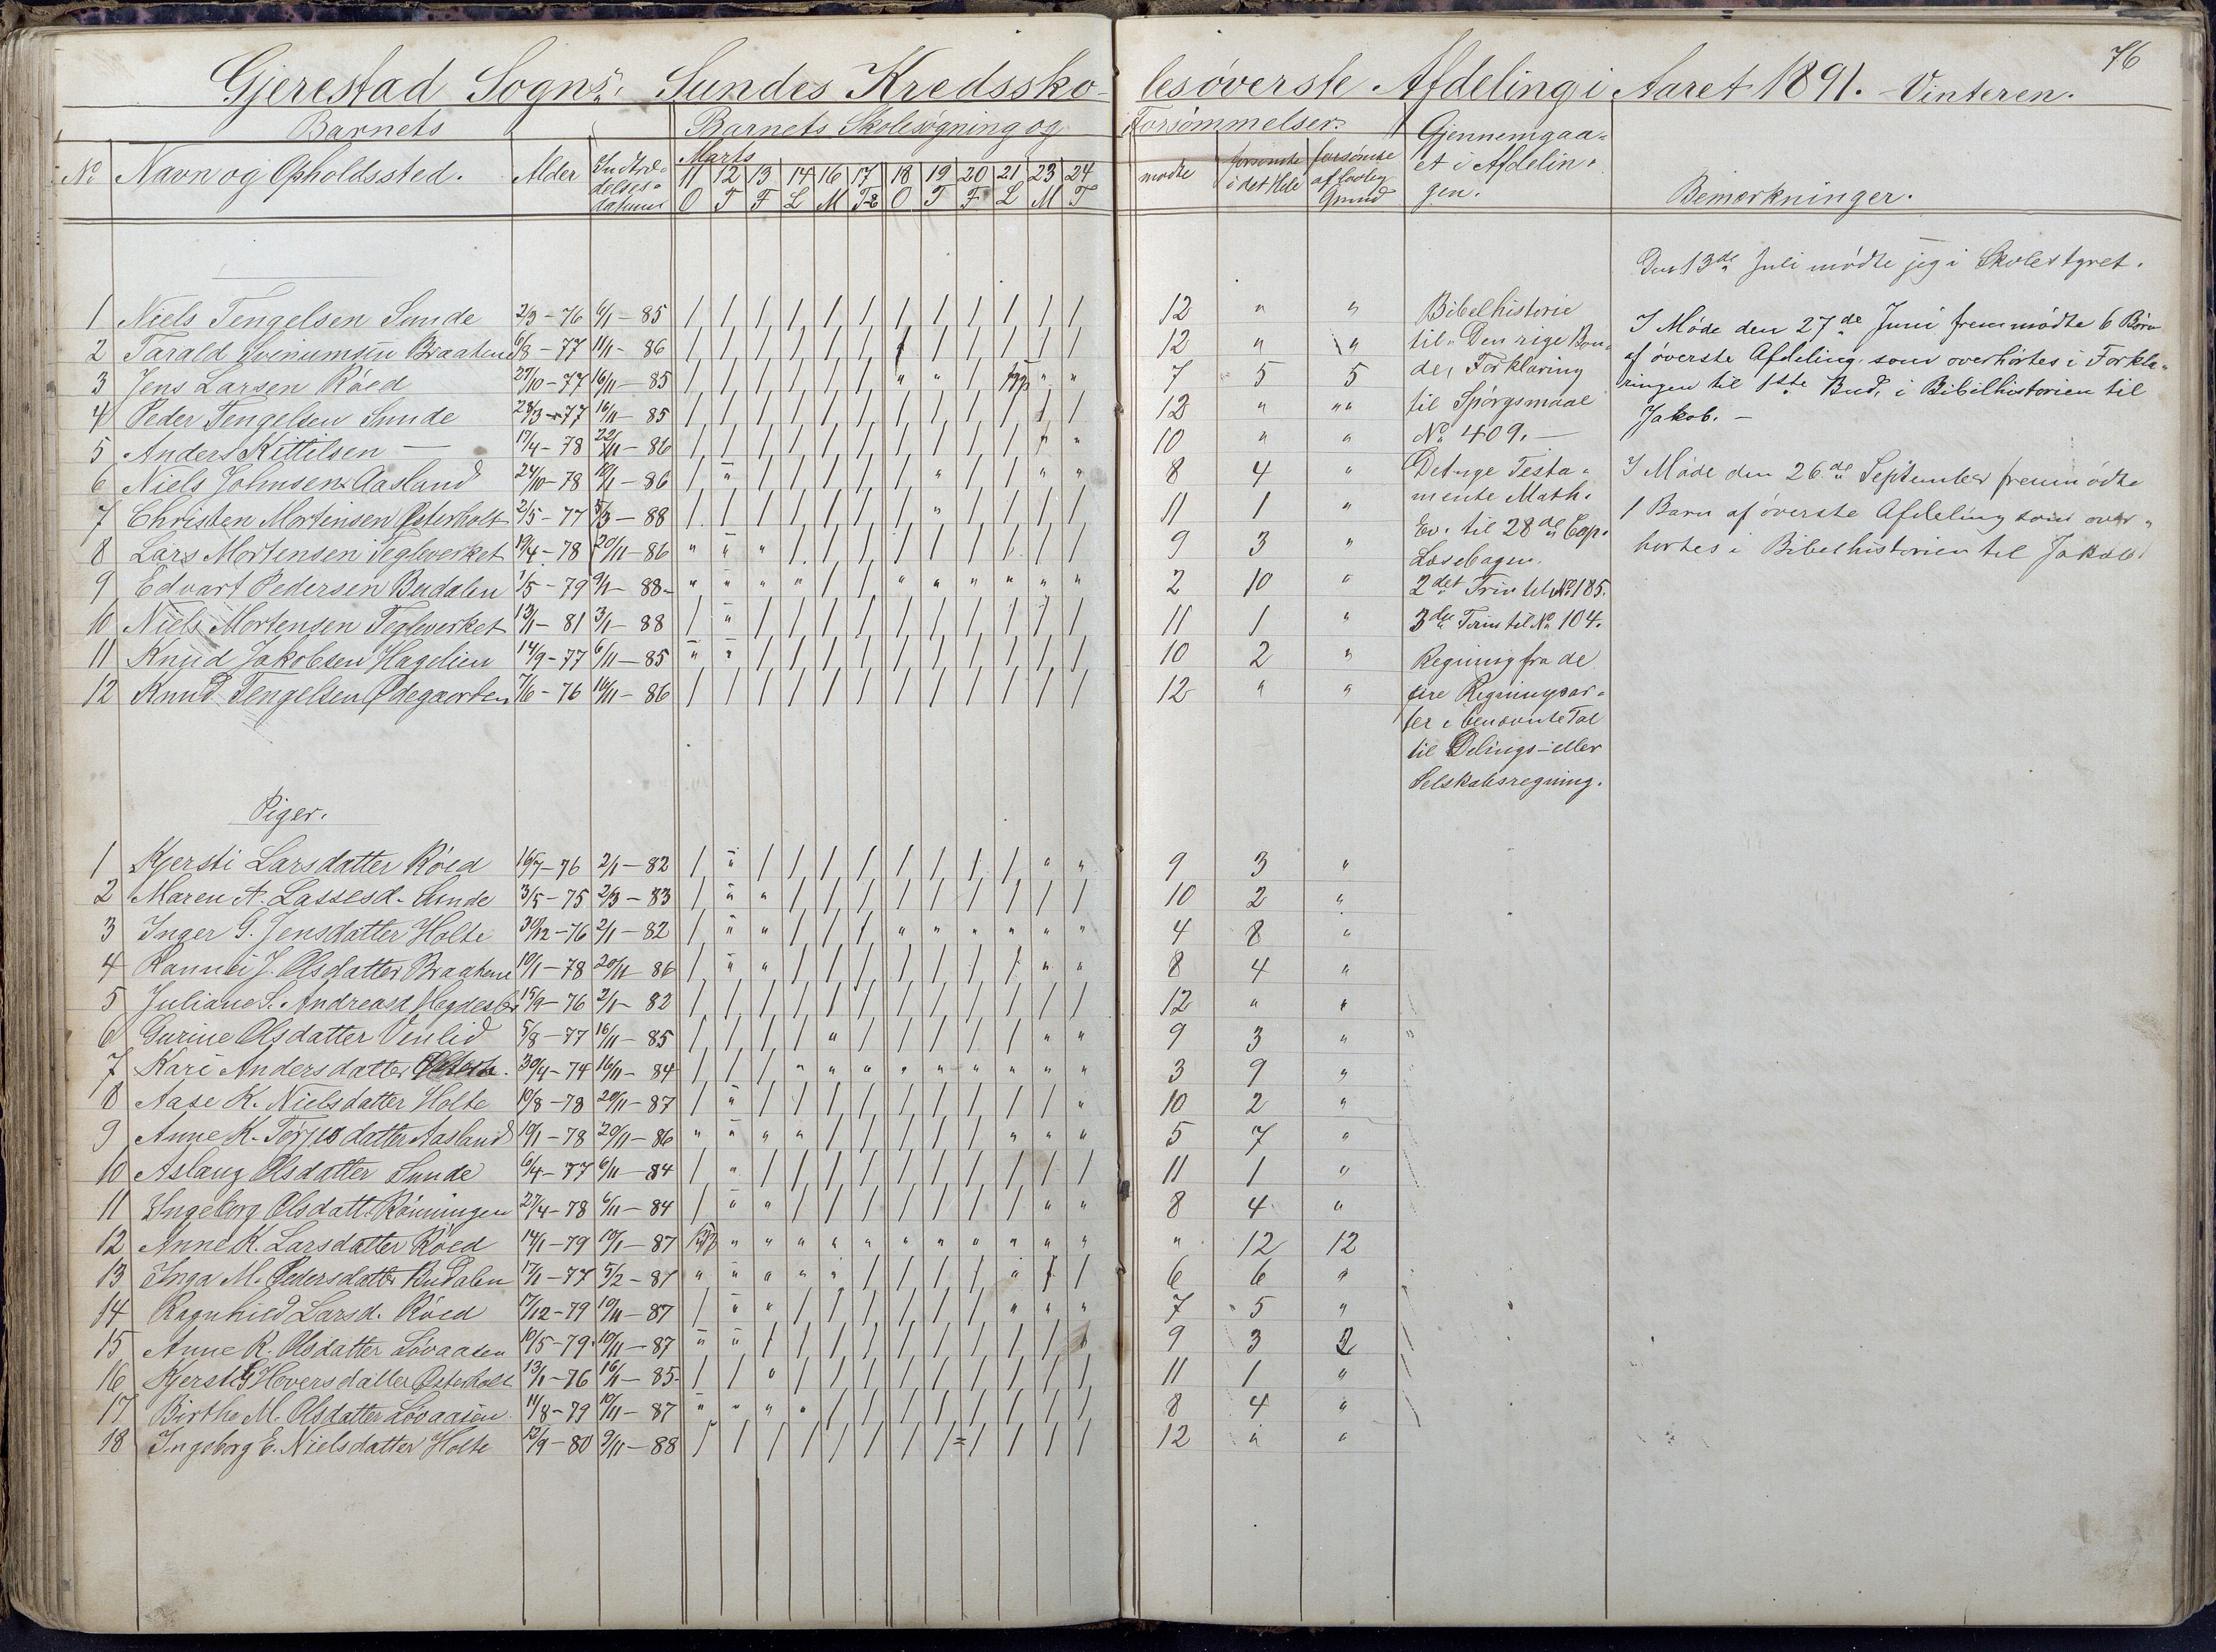 76
Gjerestad Sogns. Sundes Kredssko-
lesøverste Afdeling i Aaret 1891. - Vinteren.
Barnets
Barnets Skolesøgning og
Forsømmelser.
No Navn og Opholdssted. Alder Indtræ-
delses-
datum
Marts
11 12 13 14 16 17 18 19 20 21 23 24
O T F L M T O T F L M T
mødte forsømte i det Hele forsømte af lovlig Grund
Gjennemgaa-
et i Afdelin-
gen.
Bemærkninger.
1 Niels Tengelsen Sunde 2/3-76 6/1-85 / / / / / / / / / / / / 12 " "
2 Tarald Braatene 6/8-77 11/1-86 / / / / / / / / / / / / 12 " "
3 Jens Larsen Røed 27/10-77 16/11-85 / / / / / / " " / syg " " 7 5 5
4 Peder Tengelsen Sunde 28/3-77 16/11-85 / / / / / / / / / / / / 12 " "
5 Anders Kittilsen — 17/4-78 22/11-86 / / / / / / / / / / " " 10 " "
6 Niels Johnsen Aasland 24/10-78 10/1-86 / " / / / / / " / / " " 8 4 "
7 Christen Mortensen Østerholt 2/5-77 5/3-88 / / / / / / / " / / / / 11 1 "
8 Lars Mortensen Tegleverket 19/4-78 20/11-86 " " " / / / / / / / / / 9 3 "
9 Edvart Pedersen Budalen 1/5-79 9/1-88 " " " " / / " " " " " " 2 10 "
10 Niels Mortensen Tegleverket 13/1-81 3/1-88 / " / / / / / / / / / / 11 1 "
11 Knud Jakobsen Hagelien 14/9-77 6/11-85 " " / / / / / / / / / / 10 2 "
12 Knud Tengelsen Ødegaarden 7/6-76 16/11-86 / / / / / / / / / / / / 12 " "
Bibelhistorie
til "Den rige Bon-
de, Forklaring
til Spørgsmaal
No 409. —
Det nye Testa-
mente Math.
Ev. til 28de Cap.
Læsebogen.
2det Trin til No 185.
3die Trin til No 104.
Regning fra de
fire Regningsar-
ter i benævnte Tal
til Delings- eller
Selskabsregning.
Den 13de Juli mødte jeg i Skolestyret.
I Møde den 27de Juni fremmødte 6 Børn
af øverste Afdeling som overhørtes i Forkla-
ringen til 1ste Bud, i Bibelhistorien til
Jakob. —
I Møde den 26de September fremmødte
1 Barn af øverste Afdeling som over-
hørtes i Bibelhistorien til Jakob
Piger.
1 Kjersti Larsdatter Røed 16/7-76 2/1-82 / " / / / / / / / / " " 9 3 "
2 Maren A. Lassesd. Sunde 3/5-75 2/3-83 / " " / / / / / / / / / 10 2 "
3 Inger G. Jensdatter Holte 30/12-76 2/1-82 / " " / / / " " " " " " 4 8 "
4 Rannei J. Olsdatter Braatene 10/1-78 20/11-86 / " " / / / / / / / " " 8 4 "
5 Juliane S. Andreasd. 15/9-76 2/1-82 / / / / / / / / / / / / 12 " "
6 Gurine Olsdatter Venlid 5/8-77 16/11-85 / / / / " / / / / / " " 9 3 "
7 Kari Andersdatter 30/4-74 16/11-84 / / / " " " " " " " " " 3 9 "
8 Aase K. Nielsdatter Holte 10/8-78 20/11-87 / " / / / / / / / / / " 10 2 "
9 Anne K. Terjusdatter Aasland 10/1-78 20/11-86 " " " " / / / / / " " " 5 7 "
10 Aslaug Olsdatter Sunde 6/4-77 6/11-84 / " / / / / / / / / / / 11 1 "
11 Ingeborg Olsdatt. Rønningen 27/4-78 6/11-84 / " " / / / / / / / " " 8 4 "
12 Anne K. Larsdatter Røed 14/1-79 10/1-87 syg " " " " " " " " " " " " 12 12
13 Inga M. Pedersdatter Budalen 17/1-77 5/2-87 " " " " " / / / / " / / 6 6 "
14 Ragnhild Larsd. Røed 17/12-79 10/11-87 / " " / / / / / / " " " 7 5 "
15 Anne K. Olsdatter Løvaasen 10/5-79 10/11-87 " " / / / / / / / / / " 9 3 2
16 Kjersti G Hoversdatter Østerholt 13/1-76 16/11-85 / / " / / / / / / / / / 11 1 "
17 Birthe M. Olsdatter Løvaasen 11/8-79 10/11-87 " " " " / / / / / / / / 8 4 "
18 Ingeborg E. Nielsdatter Holte 12/9-80 9/11-88 / / / / / / / / / / / / 12 " "